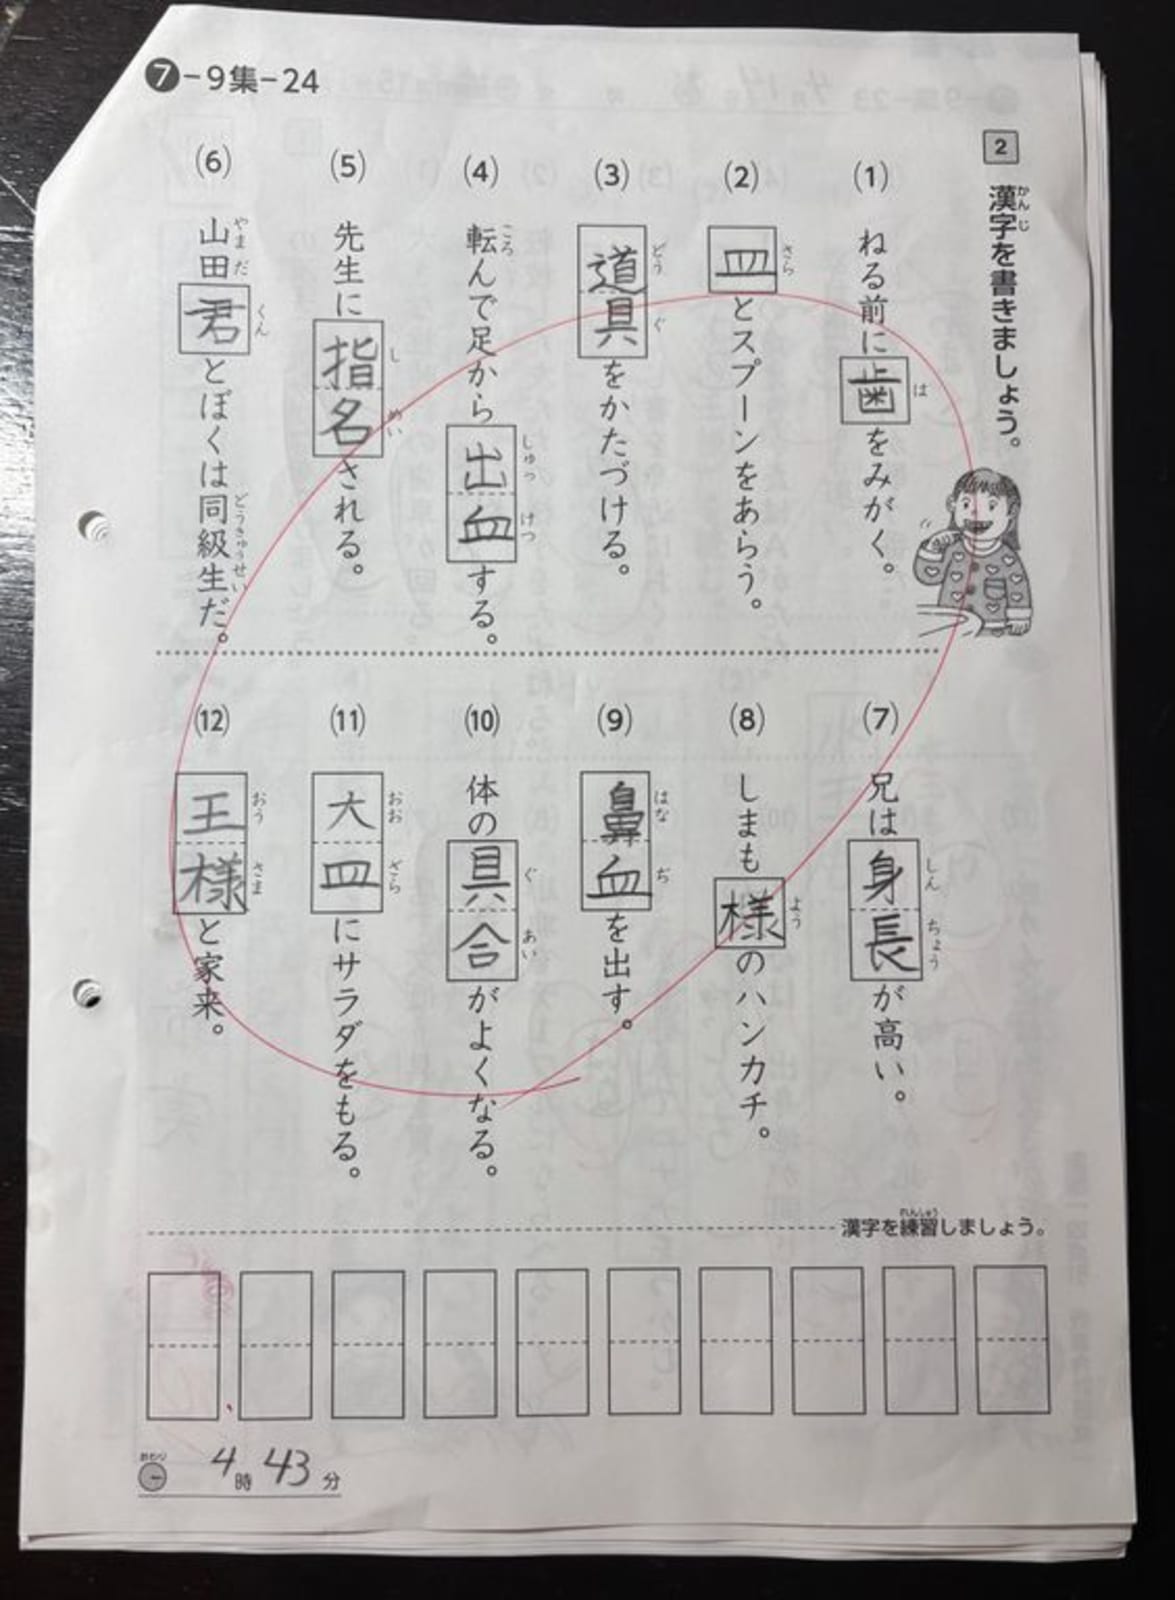 ❼-9集-24
2 漢字を書きましょう。
かんじ
(1) ねる前に歯をみがく。
は
(2) 皿とスプーンをあらう。
さら
(3) 道具をかたづける。
どうぐ
(4) 転んで足から出血する。
ころ しゅっけつ
(5) 先生に指名される。
しめい
(6) 山田君とぼくは同級生だ。
やまだ くん どうきゅうせい
(7) 兄は身長が高い。
しんちょう
(8) しまも様のハンカチ。
よう
(9) 鼻血を出す。
はなぢ
(10) 体の具合がよくなる。
ぐあい
(11) 大皿にサラダをもる。
おおざら
(12) 王様と家来。
おうさま
漢字を練習しましょう。
れんしゅう
おわり
4時43分